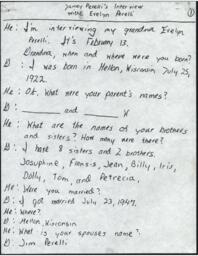 Janey Perelli's Interview
with Evelyn Perelli
1
Me: I'm interviewing my grandma Evelyn
Perelli. It's February 13.
Grandma, when and where were you born?
G: I was born in Mellen, Wisconsin July 25,
1922.
Me: Ok. What were your parent's names?
G: ______ and ______ W
Me: What are the names of your brothers
and sisters? How many were there?
G: I have 8 sisters and 2 brothers.
Josuphine, Jean, Billy, Iris,
Dolly, Tom, and Petrecia,
Me: Were you married?
G: I got married July 23, 1947.
Me: Where?
G: Mellen, Wisconsin
Me: What is your spouses name?
G: Jim Perelli